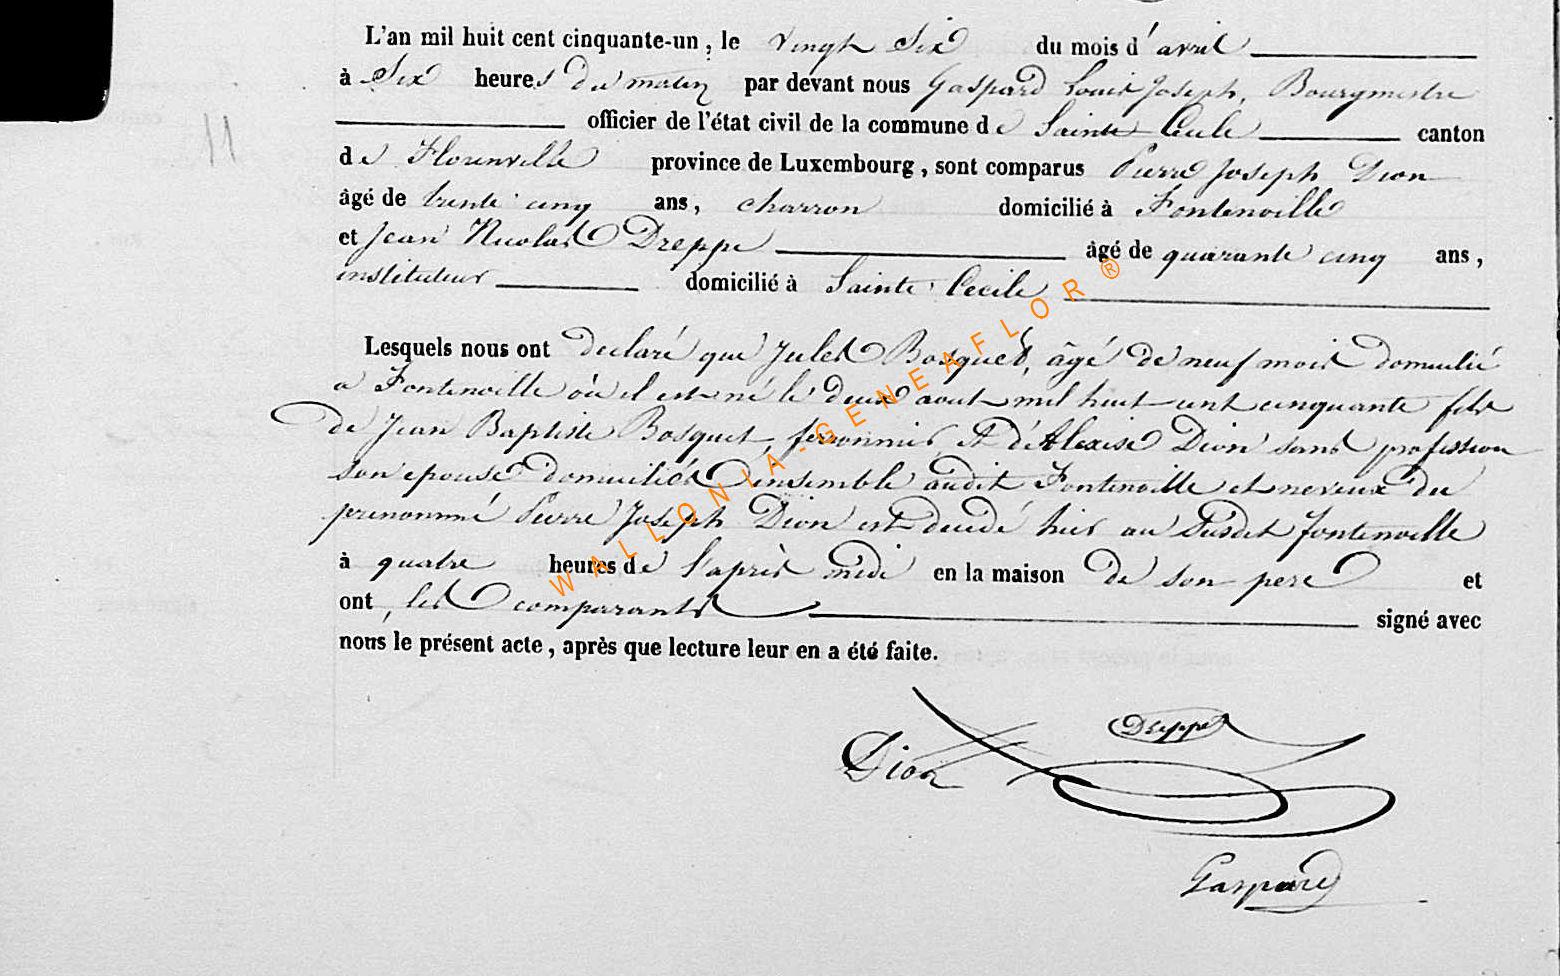 L'an mil huit cent cinquante-un, le vingt Six du mois d'avril
à Six heures du matin par devant nous Gaspard Louis Joseph, Bourgmestre
officier de l'état civil de la commune de Sainte Cecile canton
de Florenville province de Luxembourg, sont comparus Pierre Joseph Dion
âgé de trente cinq ans, charron domicilié à Fontenoille
et Jean Nicolas Dreppe âgé de quarante cinq ans,
instituteur domicilié à Sainte Cecile
Lesquels nous ont declaré que Jules Bosquet, âgé de neuf mois domicilié
a Fontenoille où il est né le deux aout mil huit cent cinquante fils
de Jean Baptiste Bosquet, ferronnier et d'Alexise Dion sans profession
son epouse domiciliés ensemble audit Fontenoille et neveux du
prenommé Pierre Joseph Dion est decedé hier au susdit fontenoille
à quatre heures de l'après midi en la maison de son pere et
ont, les comparants signé avec
nous le présent acte, après que lecture leur en a été faite.
Dreppe
Dion
Gaspard
11
WALLONIA-GENEAFLOR®